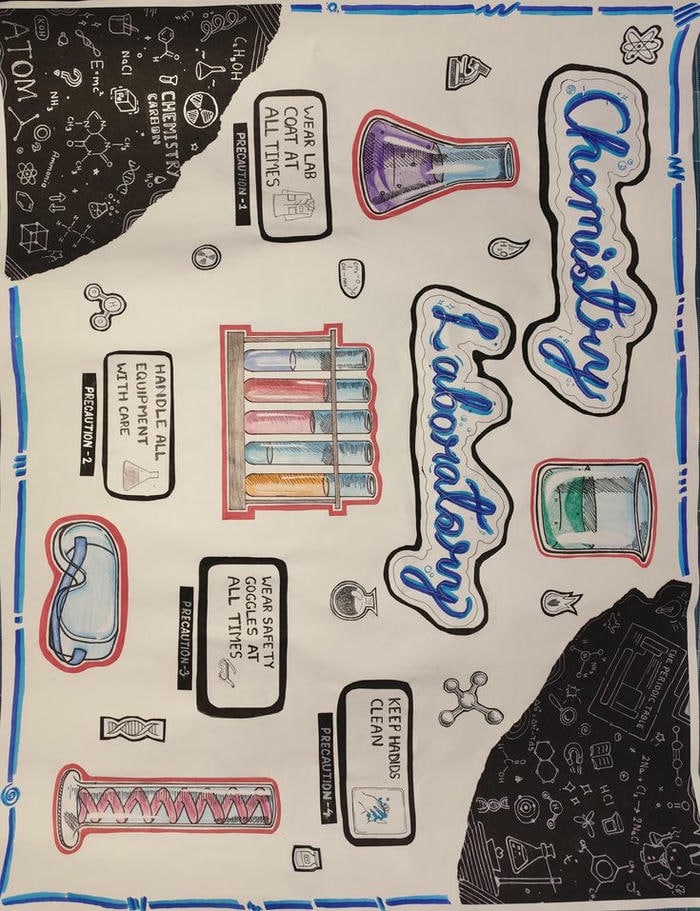 Chemistry
Laboratory
WEAR LAB
COAT AT
ALL TIMES
PRECAUTION-1
HANDLE ALL
EQUIPMENT
WITH CARE
PRECAUTION-2
WEAR SAFETY
GOGGLES AT
ALL TIMES
PRECAUTION-3
KEEP HANDS
CLEAN
PRECAUTION-4
ATOM
KOH
E=mc²
NaCl
NH₃
CH₃
CHEMISTRY
CARBON
C₂H₅OH
Ammonia
H₂O
THE PERIODIC TABLE
2Na + Cl₂ → 2NaCl
HCl